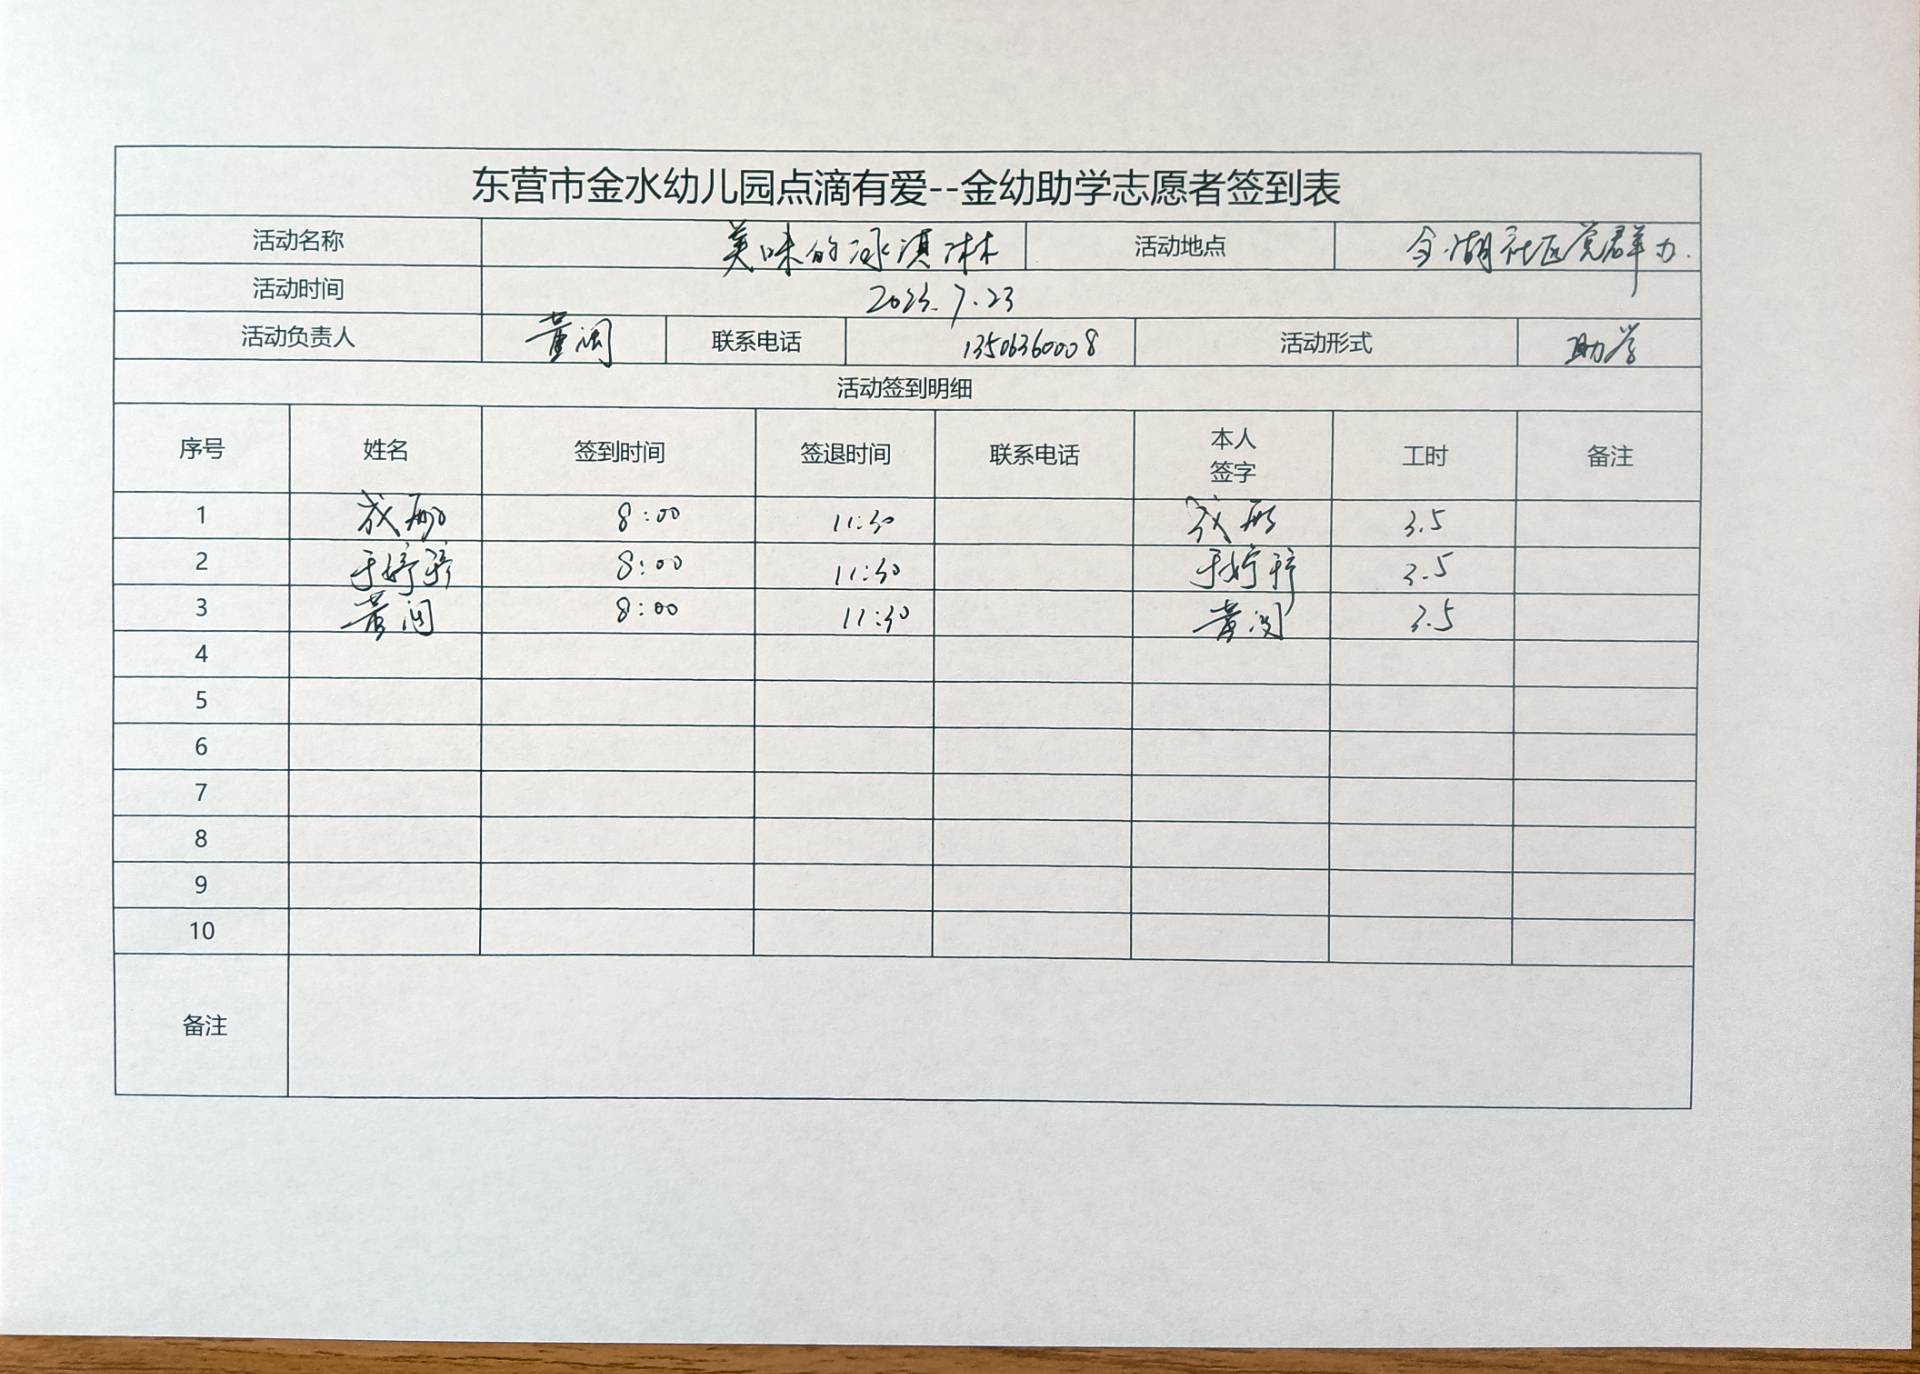 东营市金水幼儿园点滴有爱--金幼助学志愿者签到表
活动名称 美味的冰淇淋 活动地点 湖社区党群办.
活动时间 2023.7.23
活动负责人 黄闵 联系电话 13506360008 活动形式 助学
活动签到明细
序号 姓名 签到时间 签退时间 联系电话 本人签字 工时 备注
1 成 8:00 11:30 成 3.5
2 于婷婷 8:00 11:30 于婷婷 3.5
3 黄闵 8:00 11:30 黄闵 3.5
4
5
6
7
8
9
10
备注